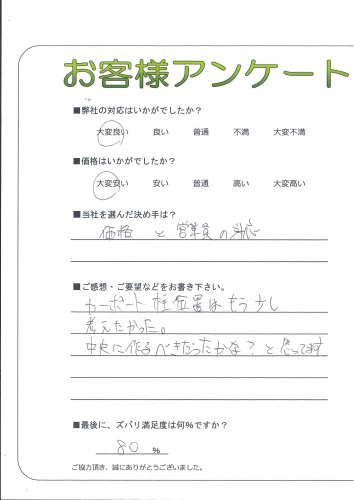 お客様アンケート
■弊社の対応はいかがでしたか？
大変良い 良い 普通 不満 大変不満
■価格はいかがでしたか？
大変安い 安い 普通 高い 大変高い
■当社を選んだ決め手は？
価格 と 営業員の対応
■ご感想・ご要望などをお書き下さい。
カーポート 柱位置はもう少し
考えたかった。
中央に作るべきだったかな？と思ってます
■最後に、ズバリ満足度は何%ですか？
80 %
ご協力頂き、誠にありがとうございました。